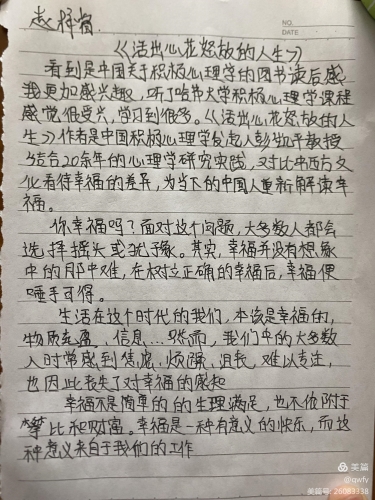 NO.
DATE
《活出心花怒放的人生》
看到是中国关于积极心理学的图书读后感
我更加感兴趣，听了哈弗大学积极心理学课程
感觉很受兴，学习到很多。《活出心花怒放的人
生》作者是中国积极心理学发起人彭凯平教授
结合20余年的心理学研究实践，对比中西方文
化看待幸福的差异，为当下的中国人重新解读幸
福。
你幸福吗？面对这个问题，大多数人都会
选择摇头或犹豫。其实，幸福并没有想象
中的那中难，在树立正确的幸福后，幸福便
唾手可得。
生活在这个时代的我们，本该是幸福的，
物质充盈、信息…。然而，我们中的大多数
人时常感到焦虑、烦躁、沮丧，难以专注，
也因此丧失了对幸福的感知
幸福不是简单的的生理满足，也不依附于
攀比和财富。幸福是一种有意义的快乐，而这
种意义来自于我们的工作
美篇
@qwfy
美篇号:26083338